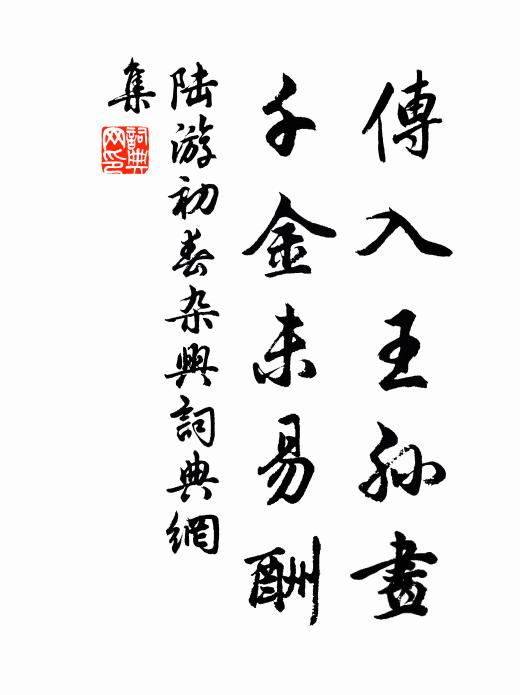 傳入王孫畫
千金未易酬
陸游初春杂興詞典網
集
詞典网印